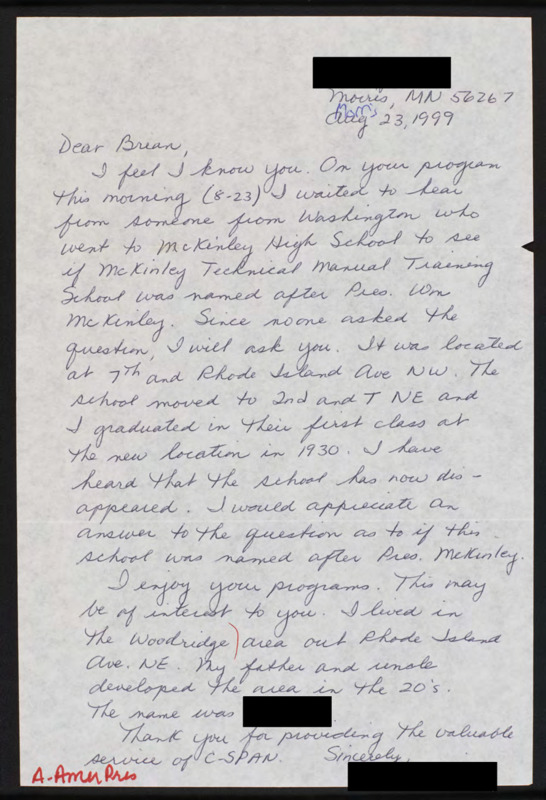 Morris, MN 56267
Morris
Aug 23, 1999
Dear Brian,
I feel I know you. On your program
this morning (8-23) I waited to hear
from someone from Washington who
went to McKinley High School to see
if McKinley Technical Manual Training
School was named after Pres. Wm
McKinley. Since no one asked the
question, I will ask you. It was located
at 7th and Rhode Island Ave NW. The
school moved to 2nd and T NE and
I graduated in their first class at
the new location in 1930. I have
heard that the school has now dis-
appeared. I would appreciate an
answer to the question as to if this
school was named after Pres. McKinley.
I enjoy your programs. This may
be of interest to you. I lived in
the Woodridge) area out Rhode Island
Ave. NE. My father and uncle
developed the area in the 20's.
The name was
Thank you for providing the valuable
service of C-SPAN. Sincerely,
A-Amer Pres